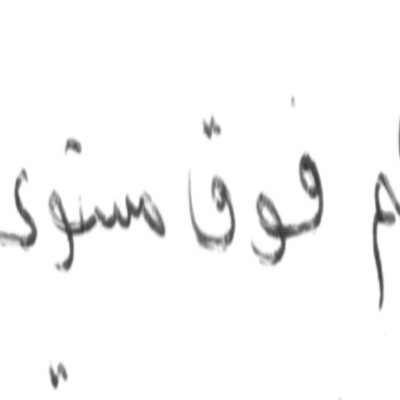 فوق مستوى